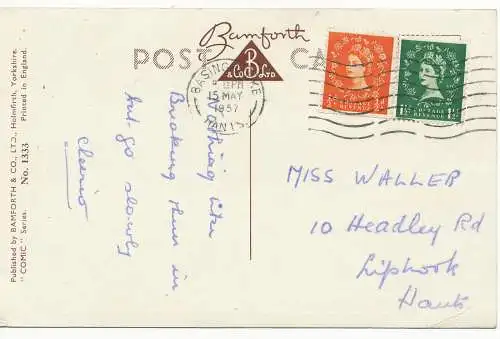 Bamforth
POST CA
B
& Co LTD
BASINGSTOKE
PM
15 MAY
1957
HANTS
POSTAGE
REVENUE
½D
POSTAGE
REVENUE
1½D 1½D
Nothing like
Breaking them in
but go slowly
Cheerio
MISS WALLER
10 Headley Rd
Liphook
Hants
Published by BAMFORTH & CO., LTD., Holmfirth, Yorkshire.
"COMIC" Series. No. 1333 Printed in England.